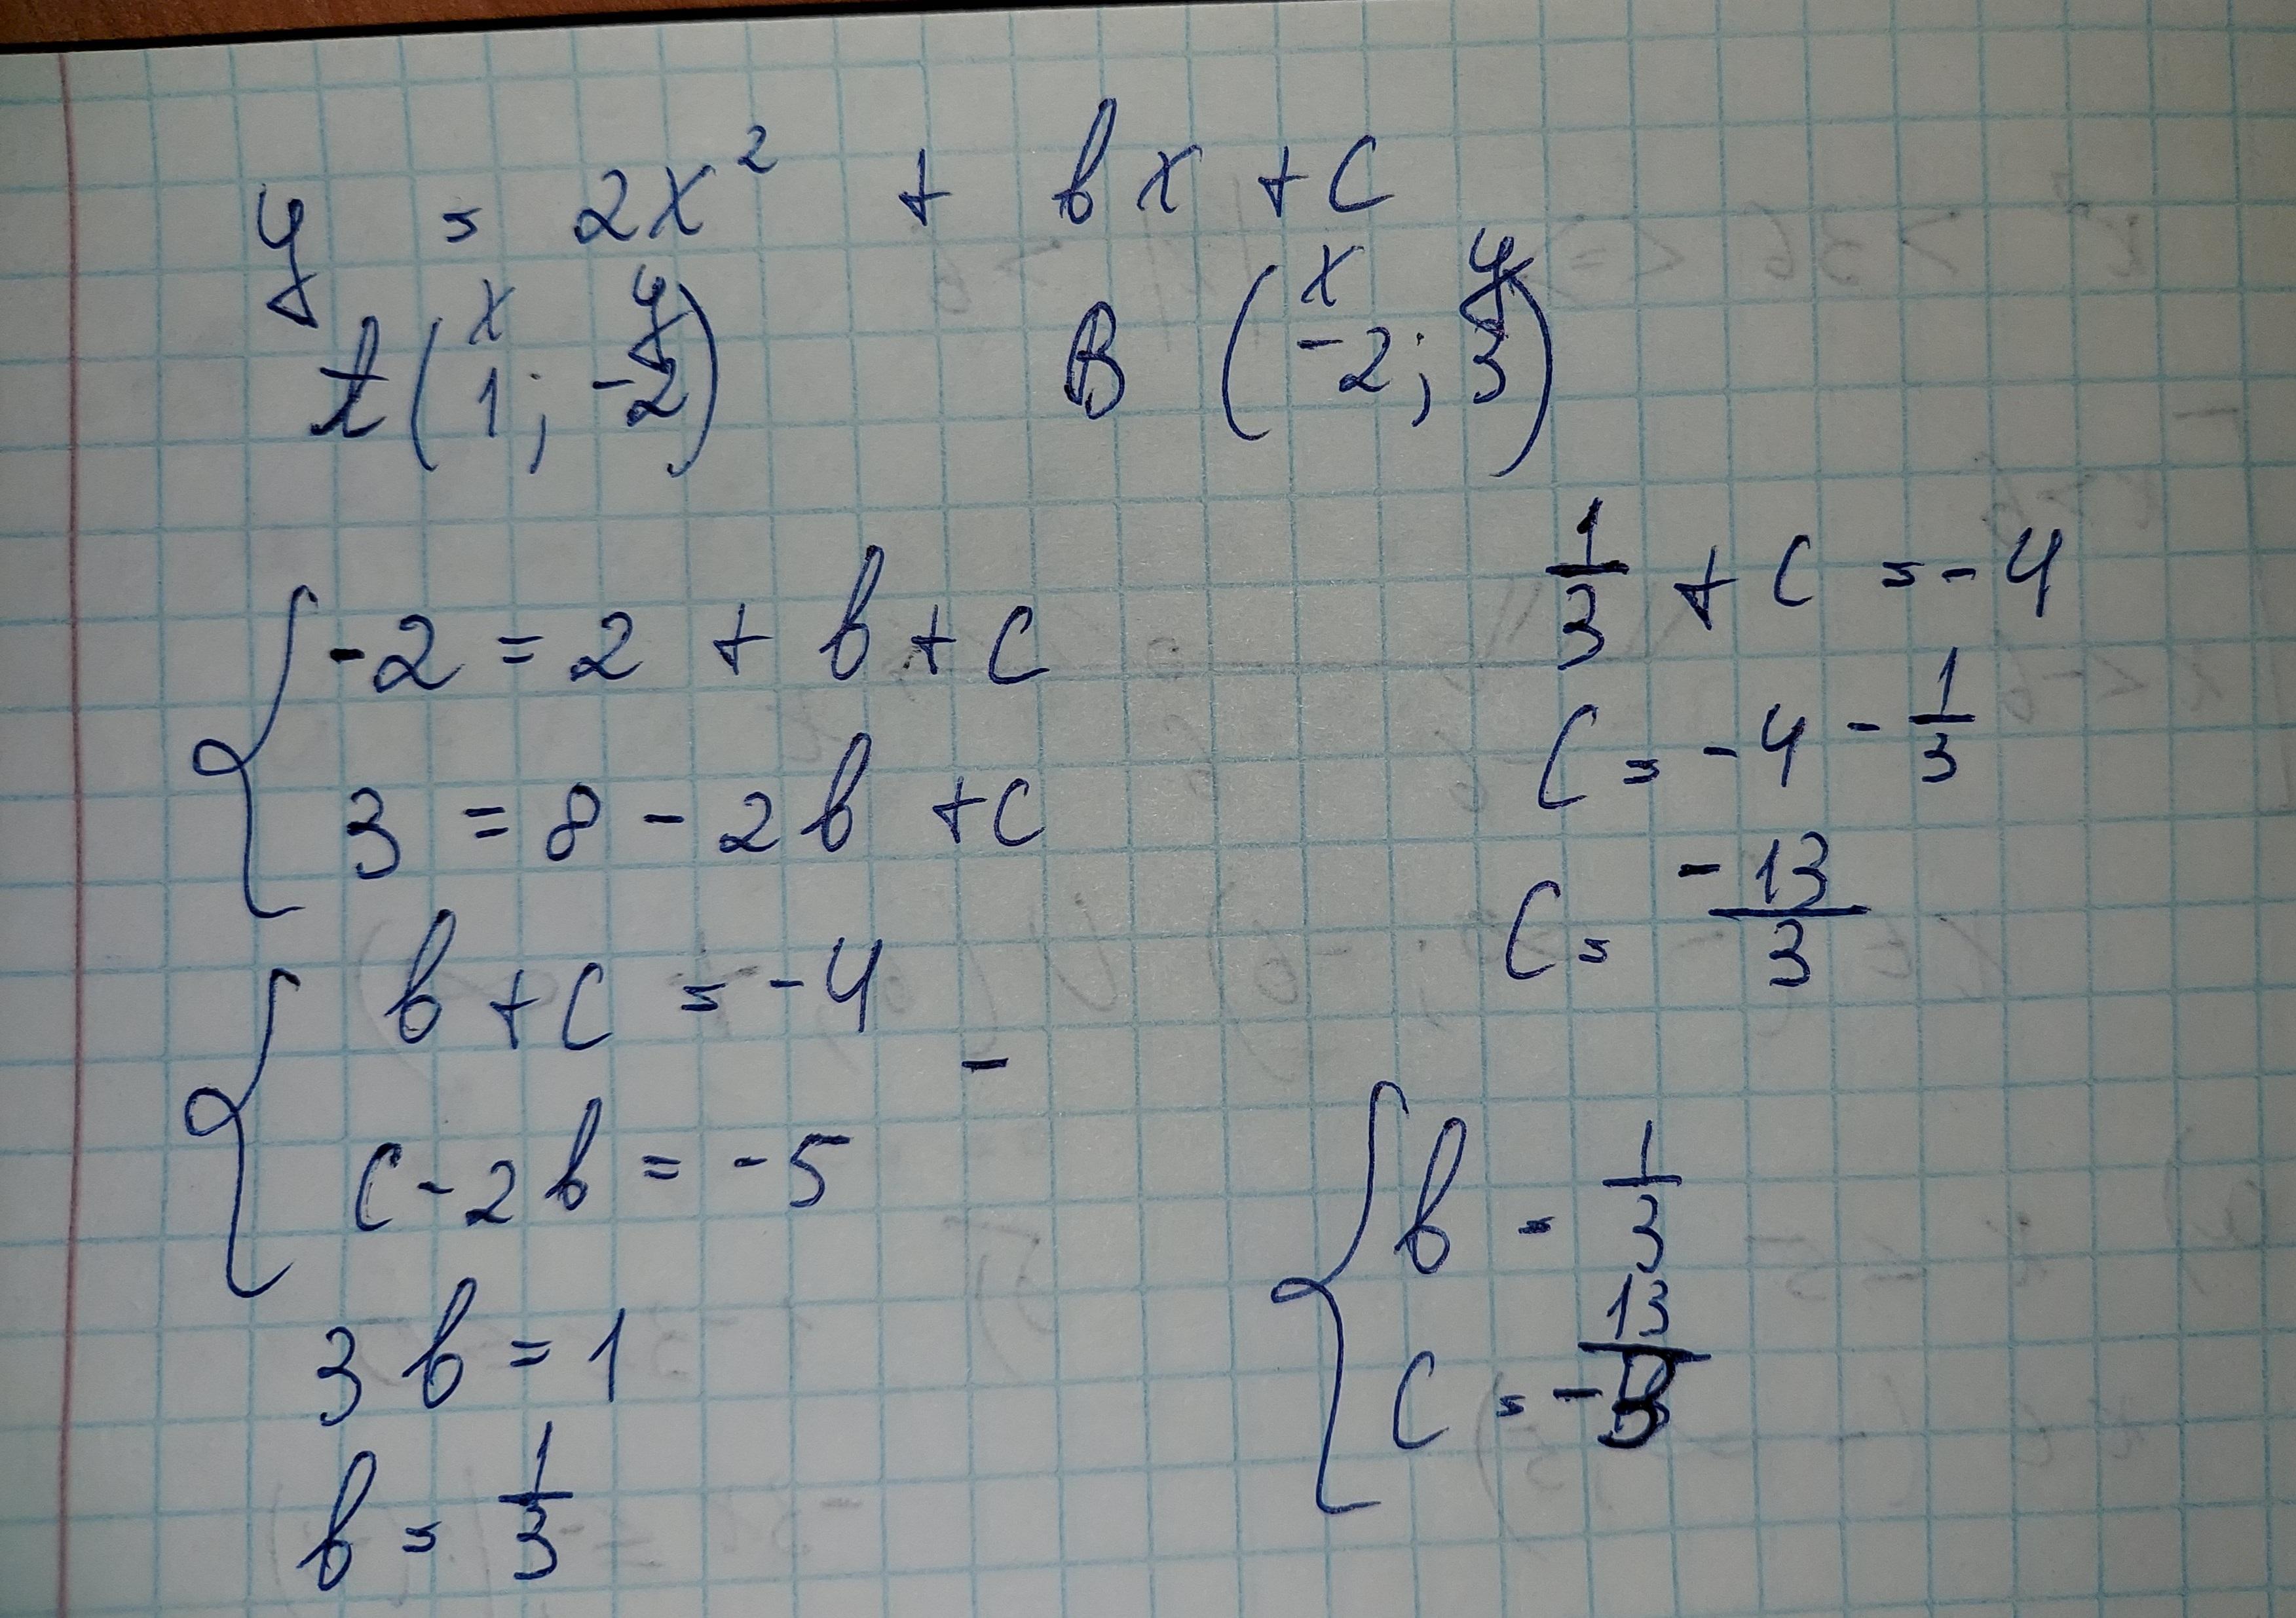 y = 2x² + bx + c
x y x y
A(1; -2) B(-2; 3)
{ -2 = 2 + b + c
3 = 8 - 2b + c
{ b + c = -4
-
c - 2b = -5
3b = 1
b = 1/3
1/3 + c = -4
c = -4 - 1/3
c = -13/3
{ b = 1/3
c = -13/3